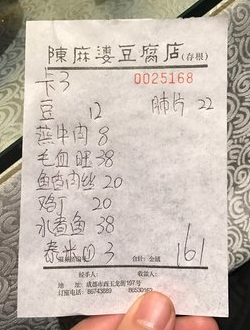 陳麻婆豆腐店(存根)
卡3 0025168
豆 12 肺片 22
蒸牛肉 8
毛血旺 38
鱼香肉丝 20
鸡丁 20
水煮鱼 38
泰米 3 161
合计:金额
经手人: 收款人:
地 址: 成都市西玉龙街197号
订餐电话: 86743889